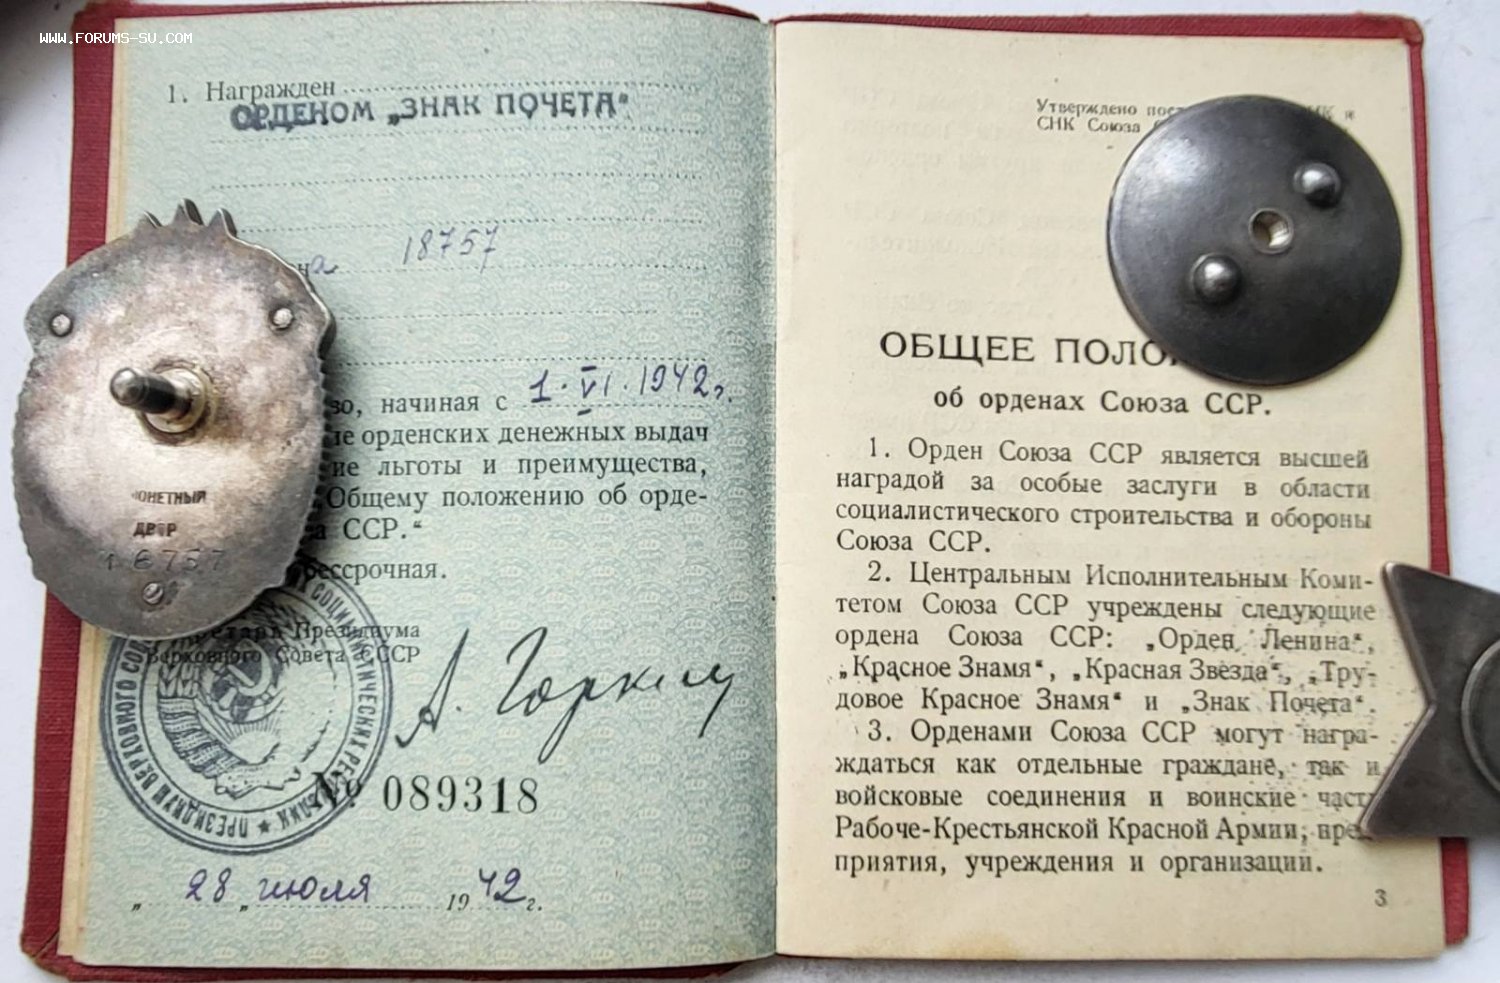 WWW.FORUMS-SU.COM
1. Награжден
ОРДЕНОМ „ЗНАК ПОЧЕТА"
18757
начиная с 1.VI.1942г.
орденских денежных выдач
льготы и преимущества,
Общему положению об орде-
СССР.“
бессрочная.
Президиума
Верховного Совета СССР
А. Горкин
№ 089318
„ 28 „ июля 1942 г.
МОНЕТНЫЙ
ДВОР
18757
Утверждено
СНК Союза
ОБЩЕЕ
об орденах Союза ССР.
1. Орден Союза ССР является высшей
наградой за особые заслуги в области
социалистического строительства и обороны
Союза ССР.
2. Центральным Исполнительным Коми-
тетом Союза ССР учреждены следующие
ордена Союза ССР: „Орден Ленина“,
„Красное Знамя“, „Красная Звезда“, „Тру-
довое Красное Знамя“ и „Знак Почета“.
3. Орденами Союза ССР могут награ-
ждаться как отдельные граждане, так и
войсковые соединения и воинские части
Рабоче-Крестьянской Красной Армии, пред-
приятия, учреждения и организации.
3